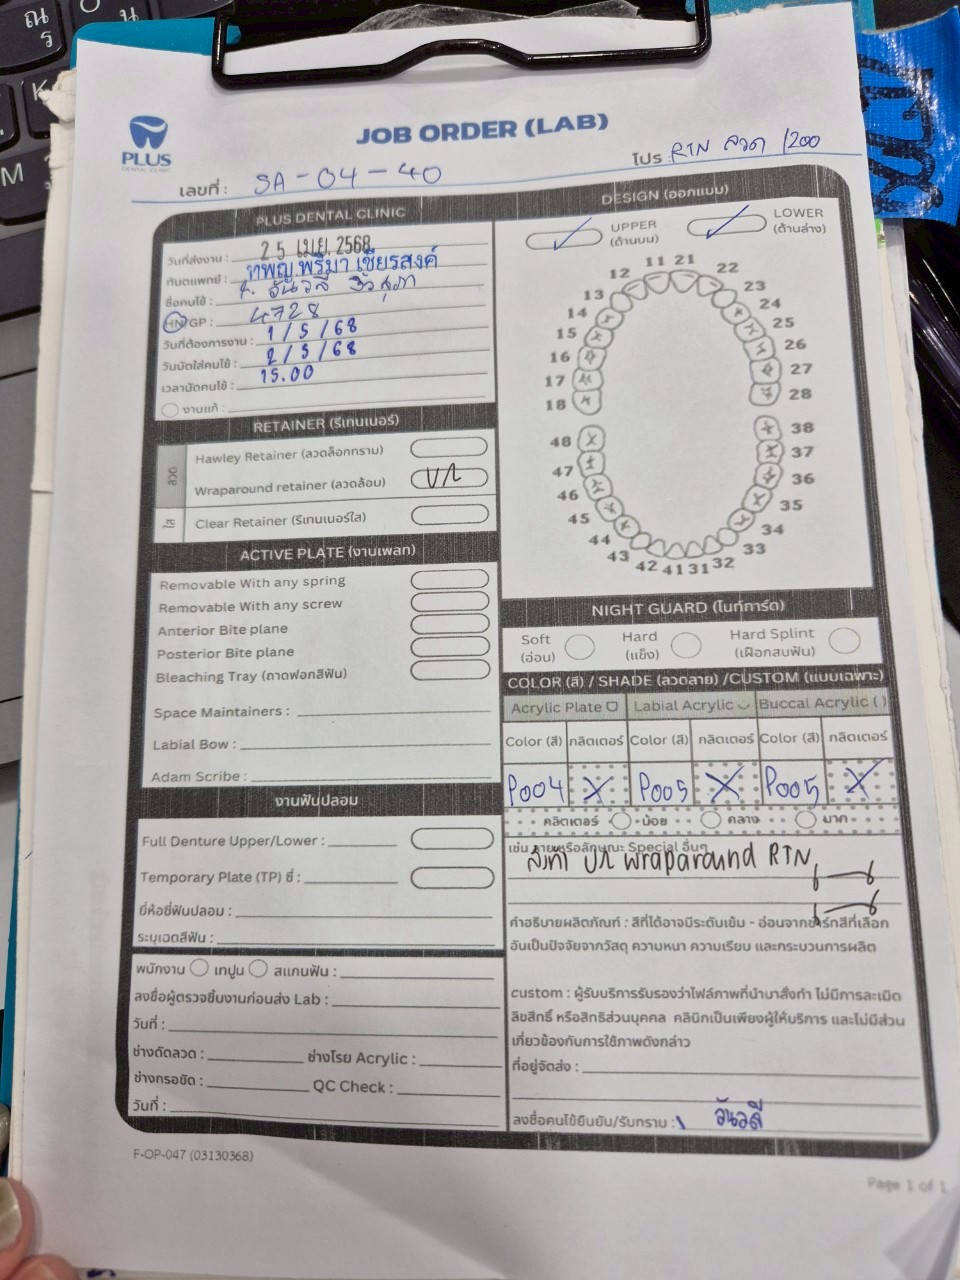 JOB ORDER (LAB)
PLUS
DENTAL CLINIC
เลขที่ : SA-04-40
โปร : RTN ลวด 1200
PLUS DENTAL CLINIC
วันที่ส่งงาน : 25 เม.ย. 2568
ทันตแพทย์ : ทพญ.พริมา เชียรสงค์
ชื่อคนไข้ :
HN/GP : 4728
วันที่ต้องการงาน : 1/5/68
วันนัดใส่คนไข้ : 2/5/68
เวลานัดคนไข้ : 15.00
งานแก้ :
RETAINER (รีเทนเนอร์)
ลวด
Hawley Retainer (ลวดล็อกกราม)
Wraparound retainer (ลวดล้อม) U/L
ใส
Clear Retainer (รีเทนเนอร์ใส)
ACTIVE PLATE (งานเพลท)
Removable With any spring
Removable With any screw
Anterior Bite plane
Posterior Bite plane
Bleaching Tray (ถาดฟอกสีฟัน)
Space Maintainers :
Labial Bow :
Adam Scribe :
งานฟันปลอม
Full Denture Upper/Lower :
Temporary Plate (TP) ซี่ :
ยี่ห้อซี่ฟันปลอม :
ระบุเฉดสีฟัน :
พนักงาน เทปูน สแกนฟัน :
ลงชื่อผู้ตรวจชิ้นงานก่อนส่ง Lab :
วันที่ :
ช่างดัดลวด : ช่างโรย Acrylic :
ช่างกรอขัด : QC Check :
วันที่ :
DESIGN (ออกแบบ)
UPPER
(ด้านบน)
LOWER
(ด้านล่าง)
11 21
12 22
13 23
14 24
15 25
16 26
17 27
18 28
48 38
47 37
46 36
45 35
44 34
43 33
42 41 31 32
NIGHT GUARD (ไนท์การ์ด)
Soft
(อ่อน)
Hard
(แข็ง)
Hard Splint
(เฝือกสบฟัน)
COLOR (สี) / SHADE (ลวดลาย) /CUSTOM (แบบเฉพาะ)
Acrylic Plate Labial Acrylic Buccal Acrylic ( )
Color (สี) กลิตเตอร์ Color (สี) กลิตเตอร์ Color (สี) กลิตเตอร์
P004 X P005 X P005 X
กลิตเตอร์ น้อย กลาง มาก
เช่น ลายหรือลักษณะ Special อื่นๆ
สั่งทำ U/L wraparound RTN 6 6
6 6
คำอธิบายผลิตภัณฑ์ : สีที่ได้อาจมีระดับเข้ม - อ่อนจากชาร์ทสีที่เลือก
อันเป็นปัจจัยจากวัสดุ ความหนา ความเรียบ และกระบวนการผลิต
custom : ผู้รับบริการรับรองว่าไฟล์ภาพที่นำมาสั่งทำ ไม่มีการละเมิด
ลิขสิทธิ์ หรือสิทธิส่วนบุคคล คลินิกเป็นเพียงผู้ให้บริการ และไม่มีส่วน
เกี่ยวข้องกับการใช้ภาพดังกล่าว
ที่อยู่จัดส่ง :
ลงชื่อคนไข้ยืนยัน/รับทราบ : วันวลี
F-OP-047 (03130368)
Page 1 of 1